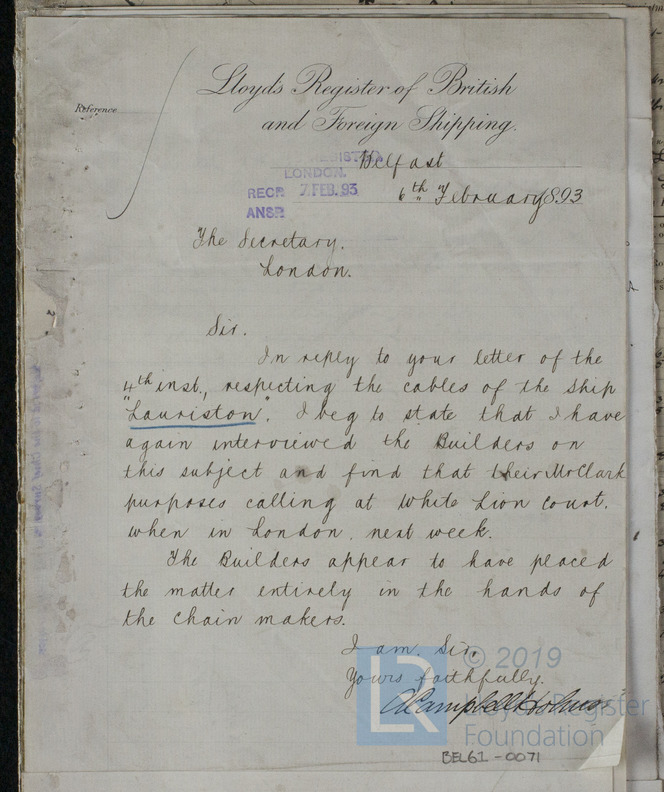 Lloyd's Register of British
and Foreign Shipping.
Reference
Belfast
LONDON.
RECD. 7.FEB.93
6th February 1893
ANSD.
The Secretary.
London.
Sir.
In reply to your letter of the
4th inst., respecting the cables of the ship
"Lauriston". I beg to state that I have
again interviewed the Builders on
this subject and find that their Mr Clark
purposes calling at White Lion Court,
when in London, next week.
The Builders appear to have placed
the matter entirely in the hands of
the chain makers.
I am, Sir,
Yours faithfully.
A Campbell Holmes
© 2019
LR
Lloyd's Register
Foundation
BEL61-0071